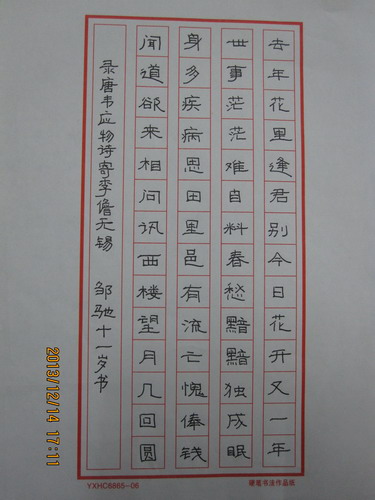 去年花里逢君别今日花开又一年
世事茫茫难自料春愁黯黯独成眠
身多疾病思田里邑有流亡愧俸钱
闻道欲来相问讯西楼望月几回圆
录唐韦应物诗寄李儋无锡 邹驰十一岁书
YXHC8885-06
硬笔书法作品纸
2013/12/14 17:11